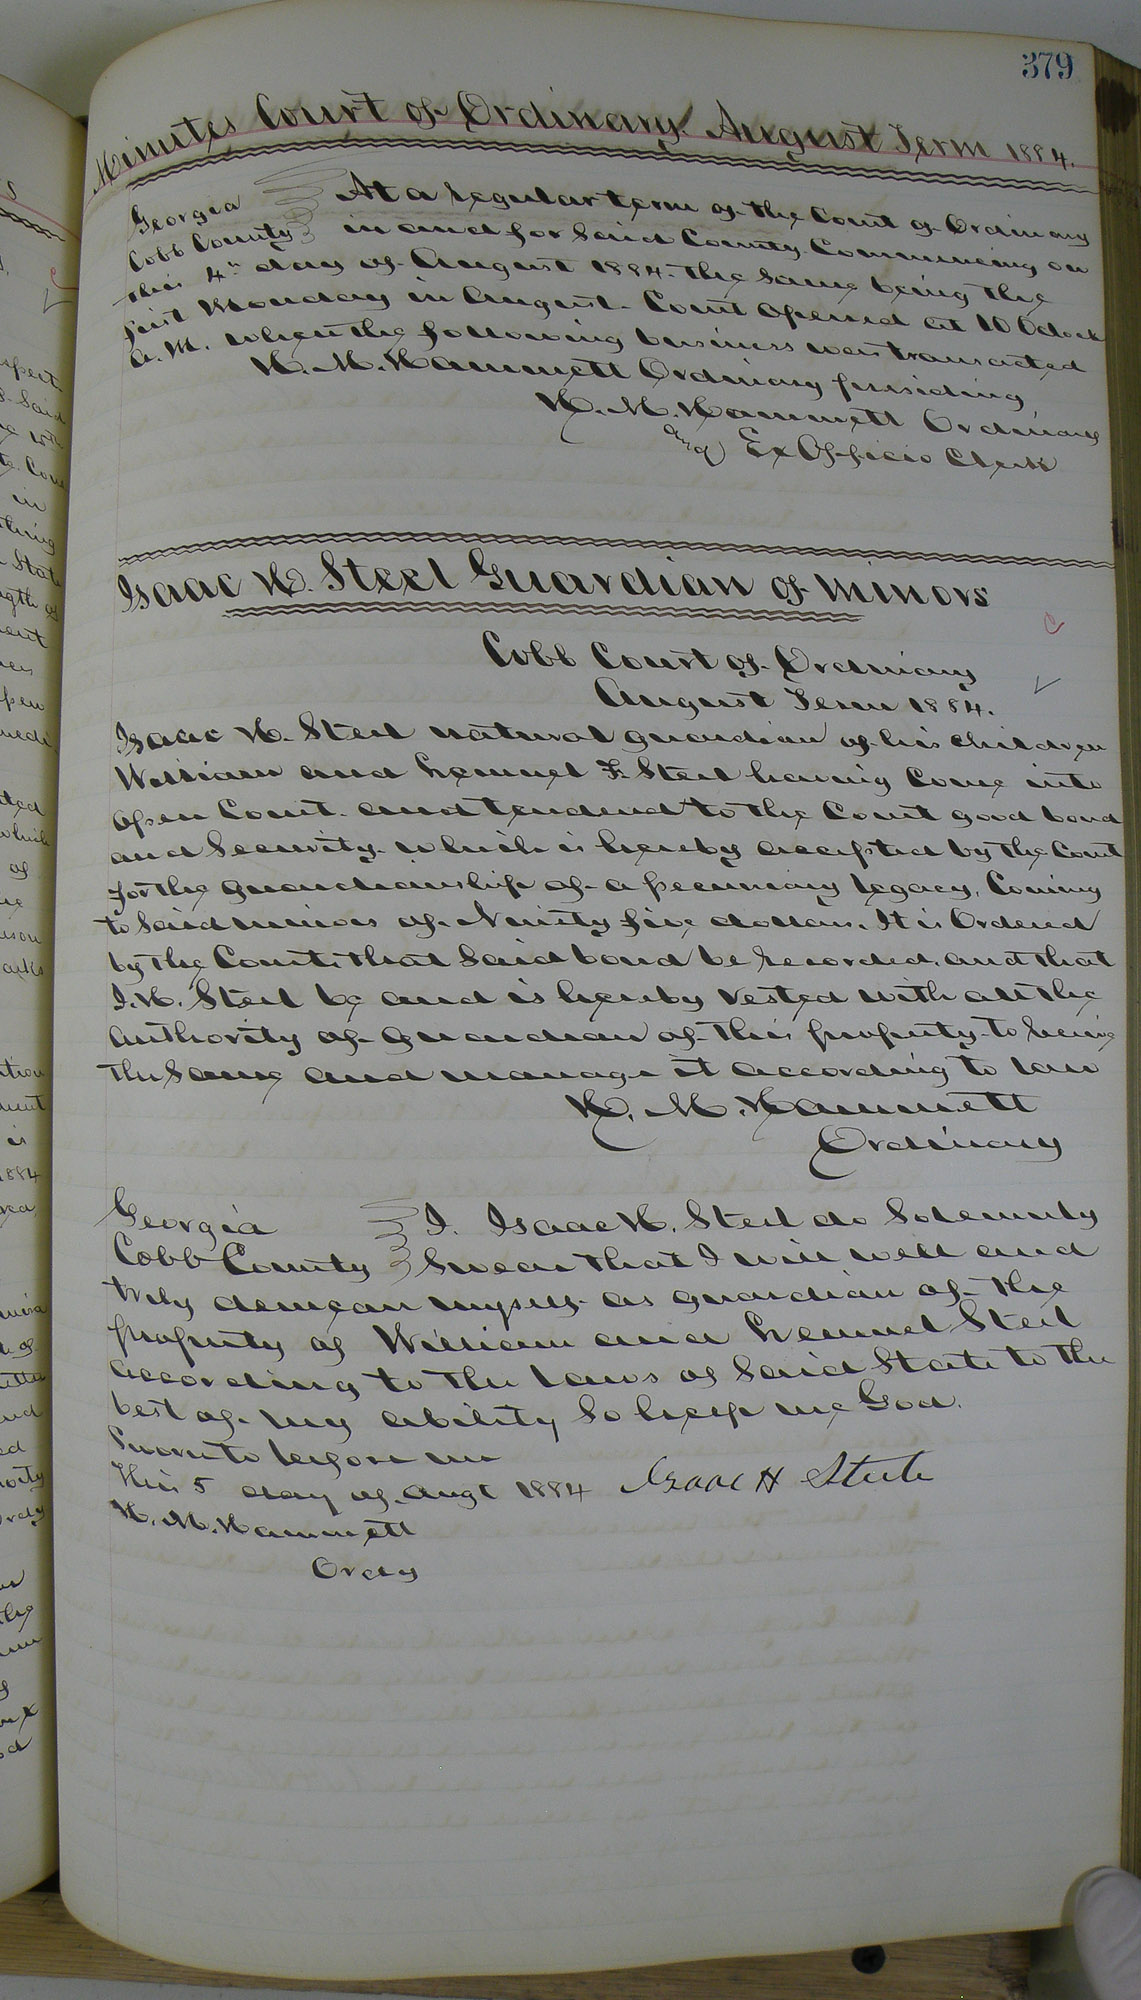 379
Minutes Court of Ordinary August Term 1884.
Georgia At a regular term of the Court of Ordinary
Cobb County in and for Said County Commencing on
this 4th day of August 1884. the same being the
first Monday in August. Court opened at 10 Oclock
A. M. when the following business was transacted
H. M. Hammett Ordinary presiding
H. M. Hammett Ordinary
and Ex Officio Clerk
Isaac H. Steel Guardian of Minors
Cobb Court of Ordinary
August Term 1884.
Isaac H. Steel natural guardian of his children
William and Lemuel F. Steel having Come into
open Court and tendered to the Court good bond
and Security which is hereby accepted by the Court
for the guardianship of a pecuniary legacy, Coming
to Said minors of Ninety five dollars. It is Ordered
by the Court that Said bond be recorded, and that
I. H. Steel be and is hereby vested with all the
authority of guardian of this property to
the Same and manage it according to law
H. M. Hammett
Ordinary
Georgia I. Isaac H. Steel do Solemnly
Cobb County Swear that I will well and
truly demean myself as guardian of the
property of William and Lemuel Steel
according to the laws of Said State to the
best of my ability So help me God.
Sworn to before me
this 5 day of Augt 1884 Isaac H Steele
H. M. Hammett
Ordy